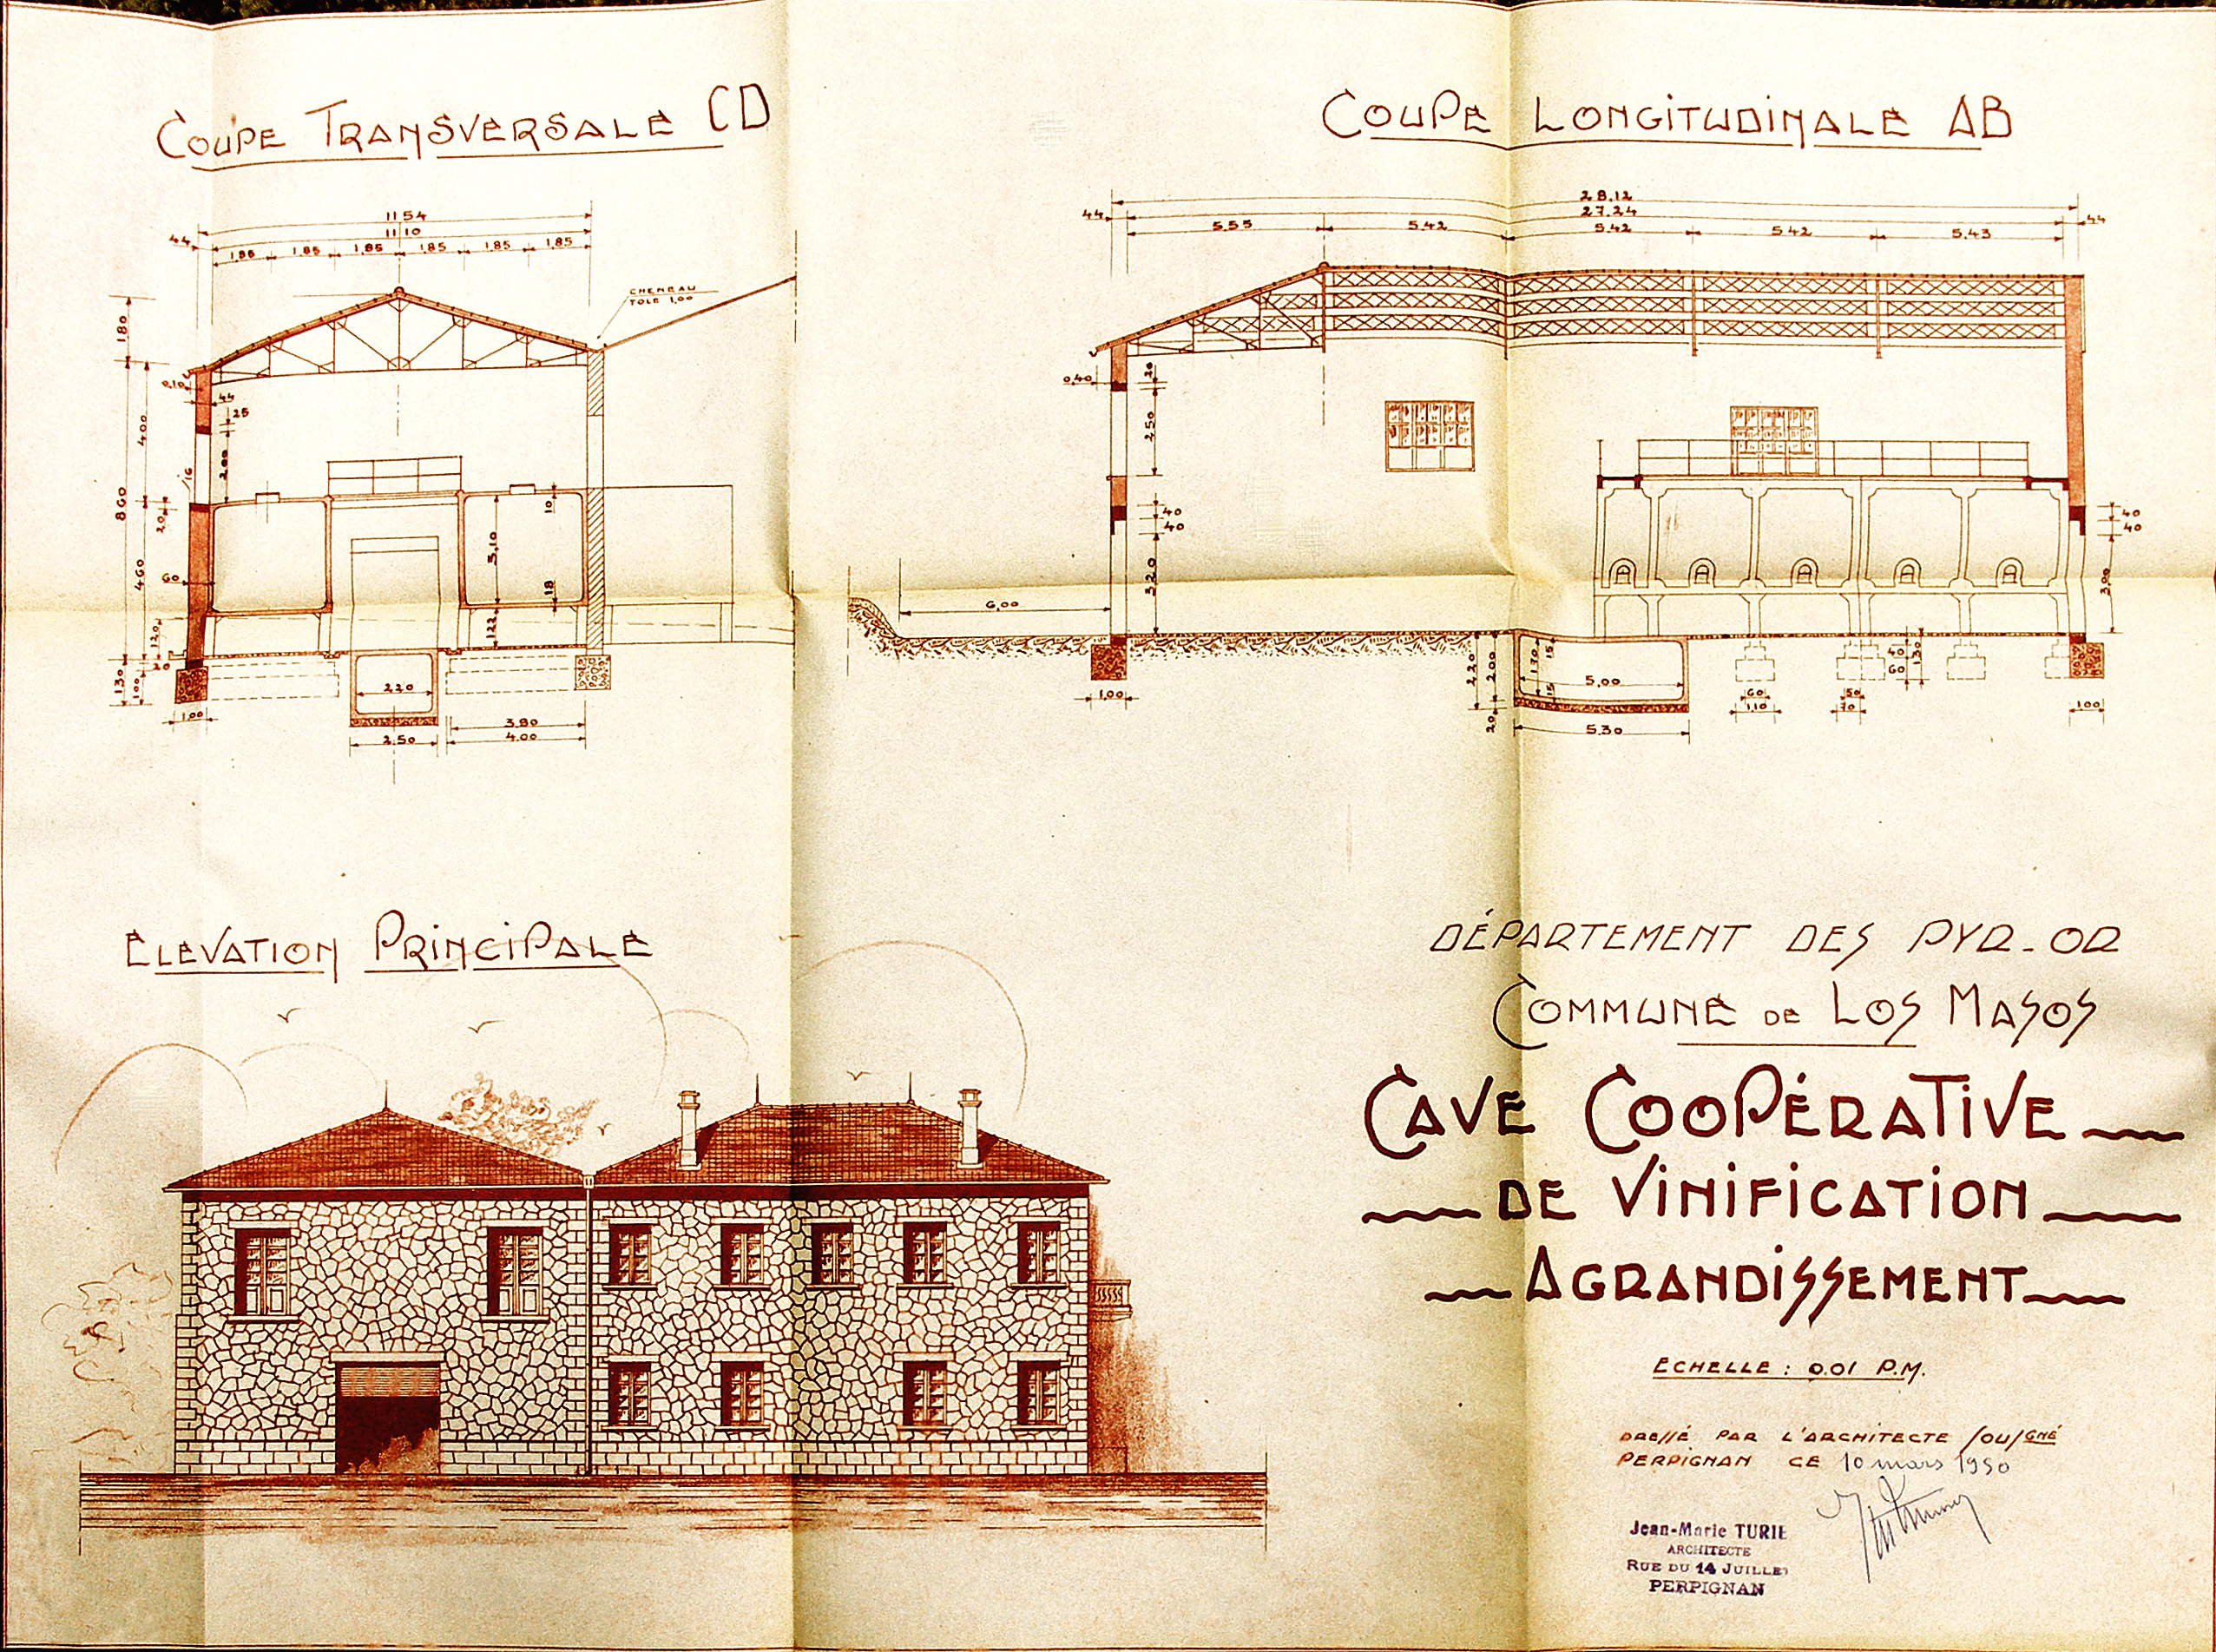 COUPE TRANSVERSALE CD
11.54
11.10
44
1.85 1.85 1.85 1.85 1.85 1.85
CHENEAU
TOLE 1,00
180
0,10
44
25
400
2.00
860
20
10
3,10
460
60
18
1.20
122
20
130
100
1.00
2.20
3.80
2.50
4.00
COUPE LONGITUDINALE AB
28.12
27.24
44
44
5.55 5.42 5.42 5.42 5.43
0,40
20
250
40
40
320
6,00
40
40
3,00
1,00
2,20
2,00
1,70
15
15
5,00
20
5.30
40
60
130
60
110
50
70
100
ELEVATION PRINCIPALE
DÉPARTEMENT DES PYR-OR
COMMUNE DE LOS MASOS
CAVE COOPÉRATIVE
DE VINIFICATION
AGRANDISSEMENT
ECHELLE : 0.01 P.M.
DRESSÉ PAR L'ARCHITECTE SOUSGNÉ
PERPIGNAN CE 10 mars 1950
Jean-Marie TURIE
ARCHITECTE
RUE DU 14 JUILLET
PERPIGNAN